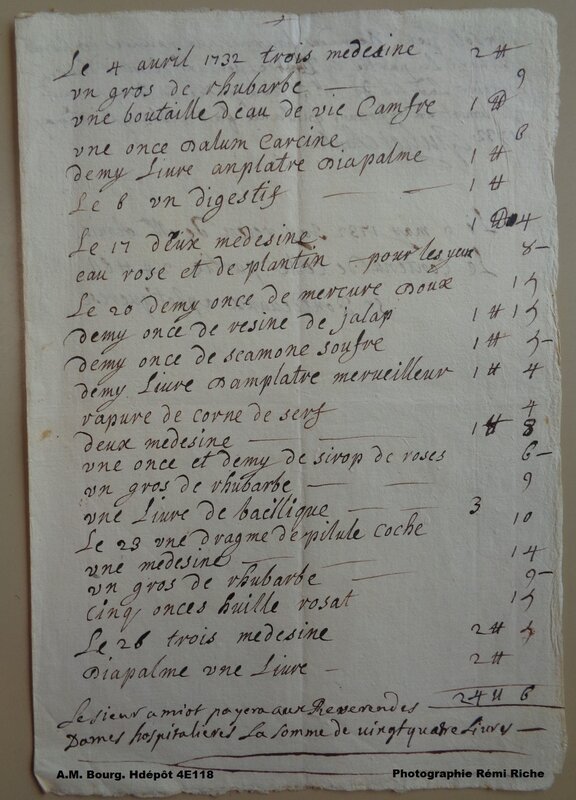 Le 4 avril 1732 trois medecine 2 ₶
vn gros de rhubarbe — 9
vne boutaille deau de vie Camfre 1 ₶
vne once Dalum Carcine 6
demy Livre anplatre Diapalme 1 ₶
Le 6 vn digestif — — 1 ₶
Le 17 deux medesine 1 ₶ 4
eau rose et de plantin — pour les yeux 8 —
Le 20 demy once de mercure Doux 15
demy once de resine de jalap 1 ₶ 15
demy once de scamone soufre 1 ₶ 5 —
demy Livre Damplatre merveilleur 1 ₶ 4
rapure de corne de serf 4
deux medesine — — 1 ₶ 8
vne once et demy de sirop de roses 6 —
vn gros de rhubarbe — — 9
vne Livre de bacilique — — 3
Le 23 vne dragme de pilule Coche 10
vne medesine — — 14
vn gros de rhubarbe — 9 —
Cinq onces huille rosat 15
Le 26 trois medesine 2 ₶ 5
Diapalme vne Livre — 2 ₶
24 ₶ 6
Le sieur amiot payera aux Reverendes
Dames hospitalieres La somme de vingt quatre Livres —
A.M. Bourg. Hdépôt 4E118
Photographie Rémi Riche